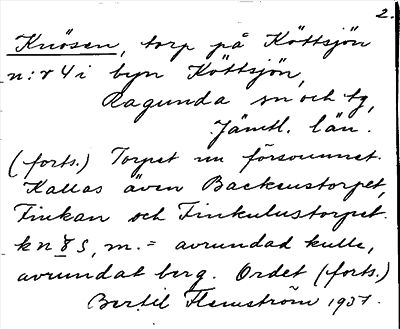 2.
Knösen, torp på Köttsjön
n:r 4 i byn Köttsjön,
Ragunda sn och tg,
Jämtl. län.
(forts.) Torpet nu försvunnet.
Kallas även Backenstorpet,
Finkan och Finkulustorpet.
m. = avrundad kulle,
avrundat berg. Ordet (forts.)
Bertil Flemström 1951.